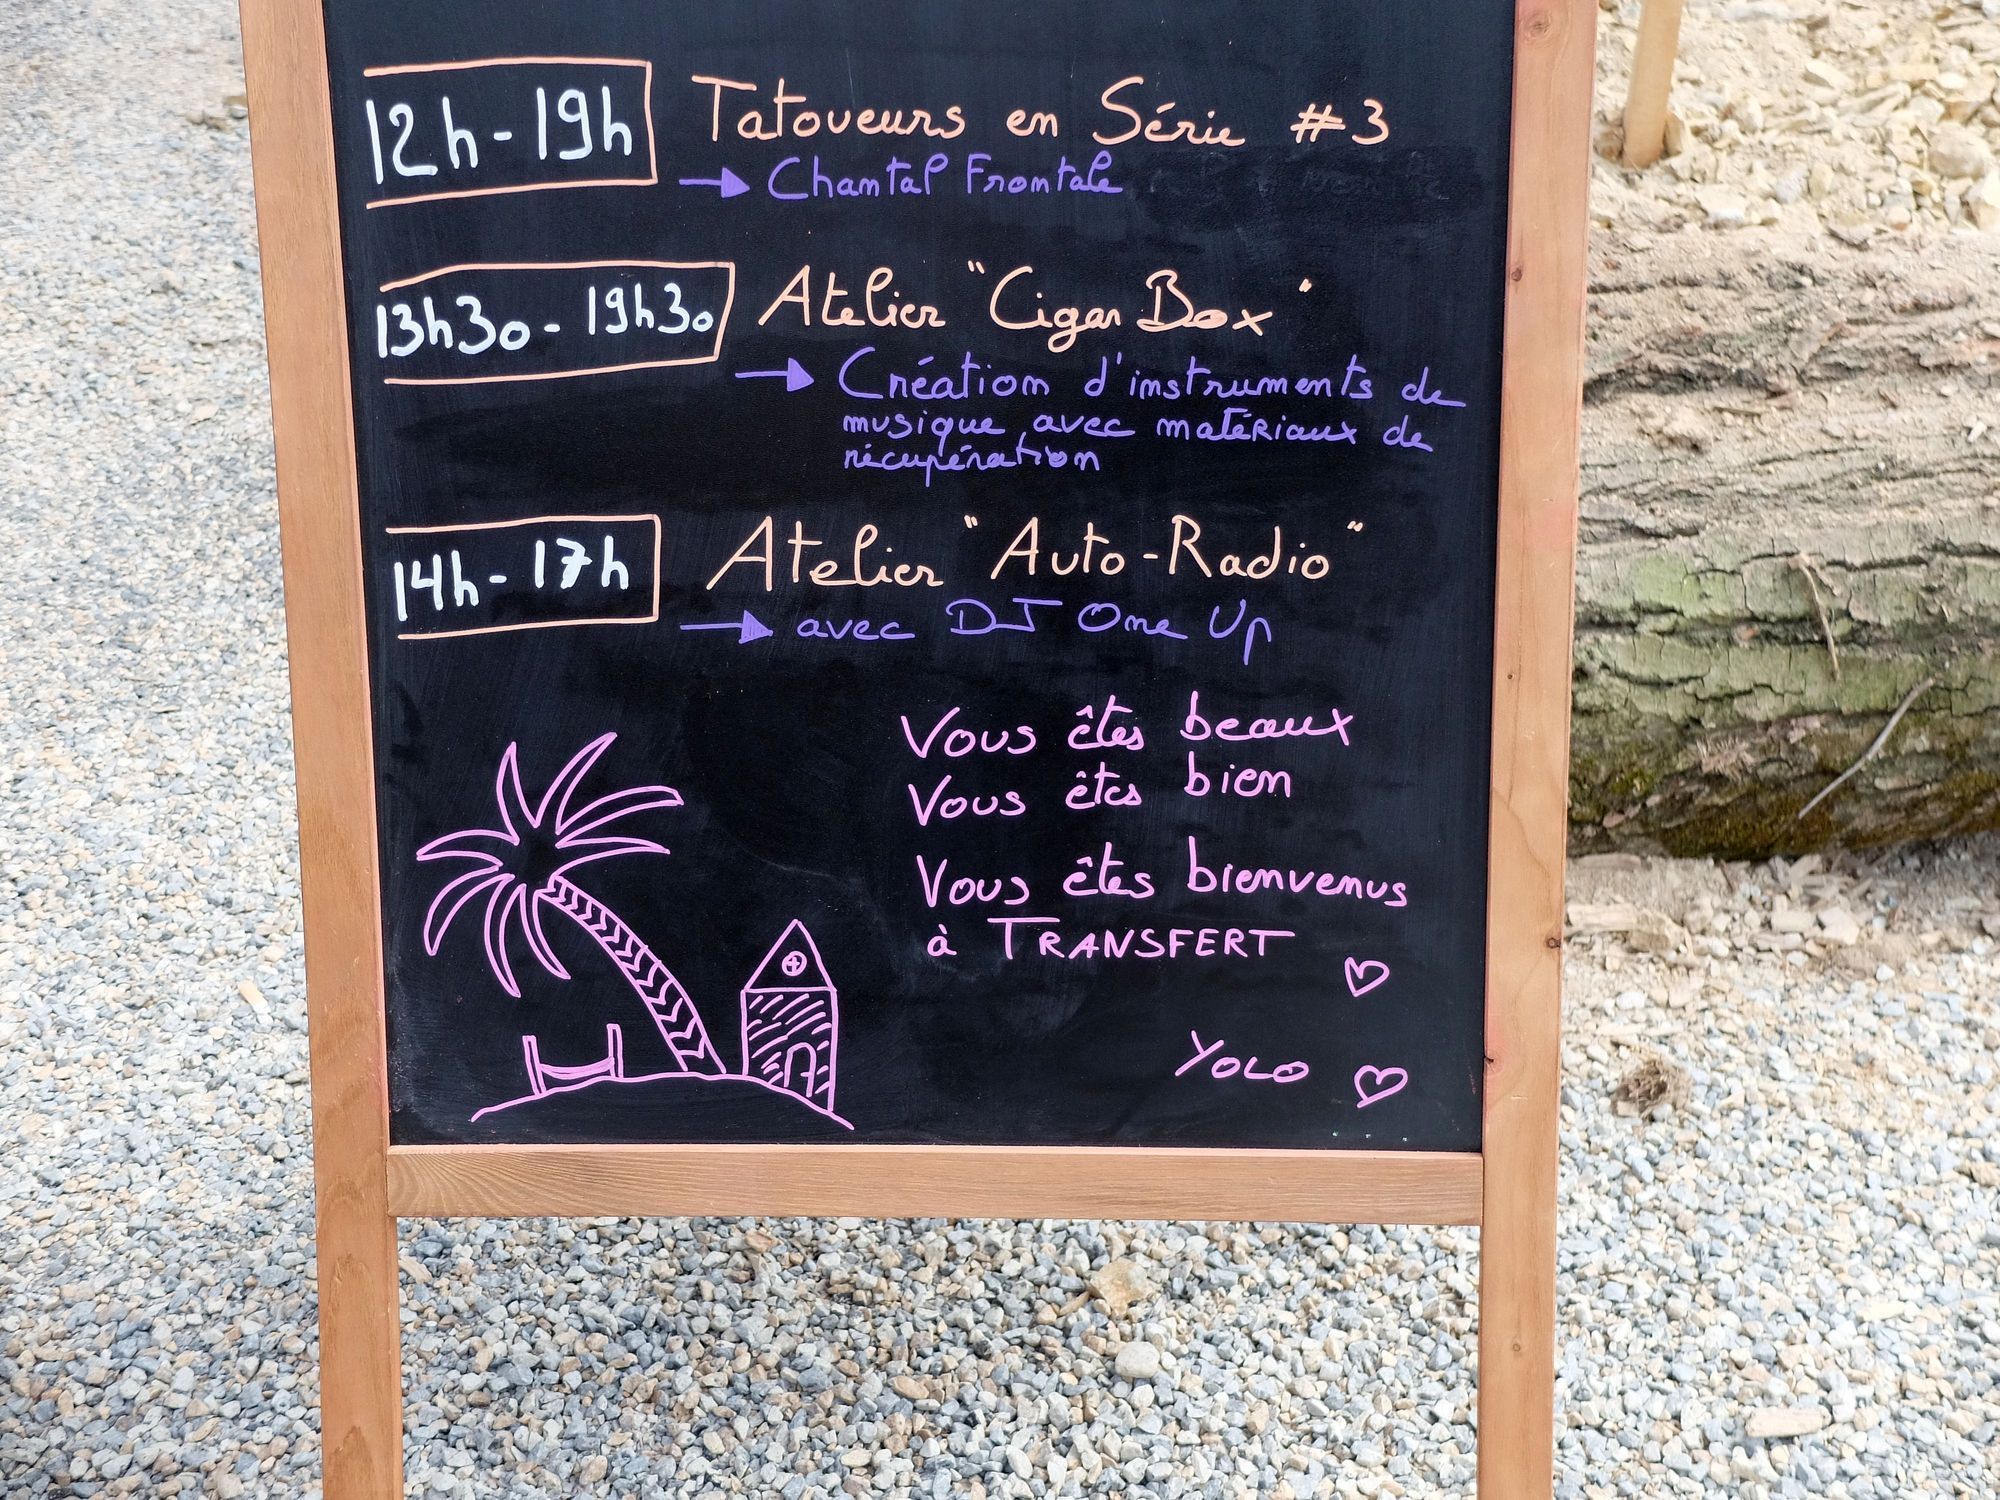 12h - 19h Tatoueurs en Série #3
→ Chantal Frontale
13h30 - 19h30 Atelier "Cigar Box"
→ Création d'instruments de
musique avec matériaux de
récupération
14h - 17h Atelier "Auto-Radio"
→ avec DJ One Up
Vous êtes beaux
Vous êtes bien
Vous êtes bienvenus
à TRANSFERT
YOLO